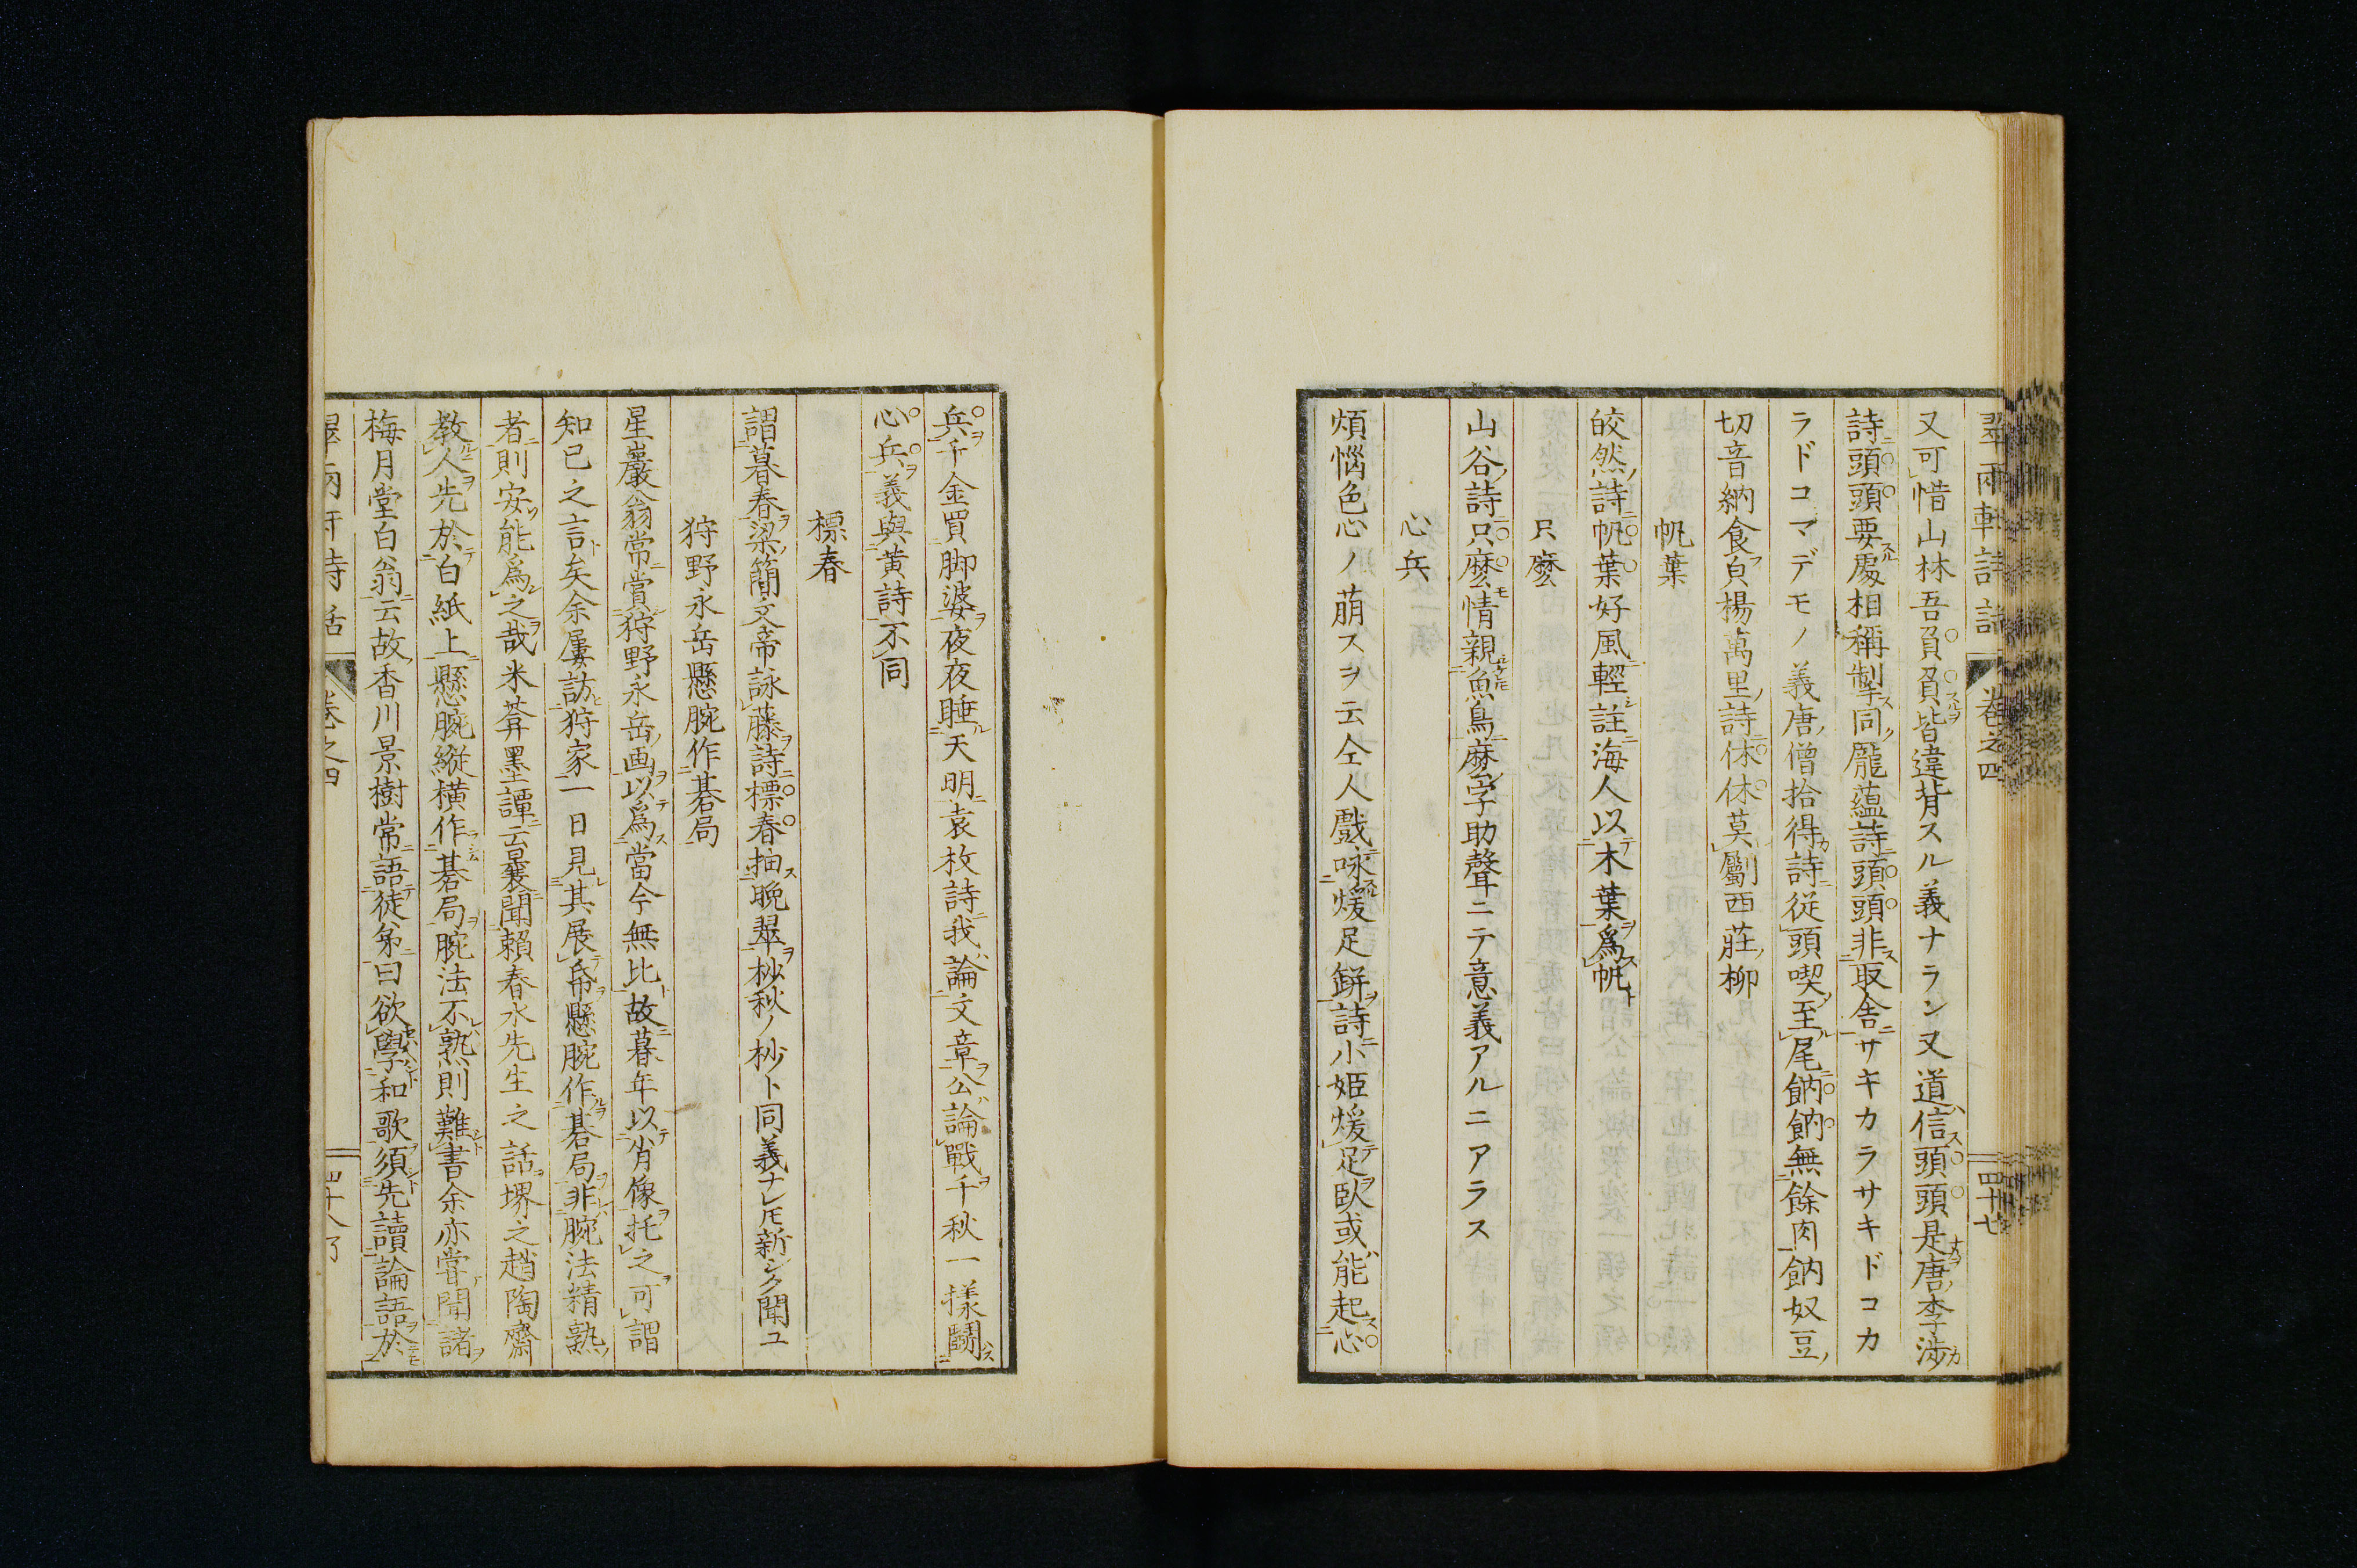 翠雨軒詩話 卷之四 四十七
又可惜山林吾負負皆違背スル義ナラン又道信頭頭是唐李涉
詩頭頭要處相稱掣同龎蘊詩頭頭非取舍サキカラサキドコカ
ラドコマデモノ義唐僧拾得詩従頭喫至尾䬣䬣無餘肉䬣奴豆
切音納食皃楊萬里詩休休莫劚西莊柳
帆葉
皎然詩帆葉好風輕註海人以木葉爲帆
只麼
山谷詩只麼情親魚鳥麼字助聲ニテ意義アルニアラス
心兵
煩惱色心ノ萠スヲ云仝人戲咏煖足缾詩小姬煖足臥或能起心
兵千金買脚婆夜夜睡天明袁枚詩我論文章公論戰千秋一樣鬪
心兵義與黃詩不同
標春
謂暮春梁簡文帝詠藤詩標春抽晚翠杪秋ノ杪ト同義ナレ𪜈新シク聞ユ
狩野永岳懸腕作碁局
星巖翁常賞狩野永岳画以爲當今無比故暮年以肖像托之可謂
知己之言矣余屢訪狩家一日見其展帋懸腕作碁局非腕法精熟
者則安能爲之哉米葊墨譚云曩聞賴春水先生之話堺之趙陶齋
教人先於白紙上懸腕縱橫作碁局腕法不熟則難書余亦嘗聞諸
梅月堂白翁云故香川景樹常語徒弟曰欲學和歌須先讀論語於
翠雨軒詩話 卷之四 四十八了